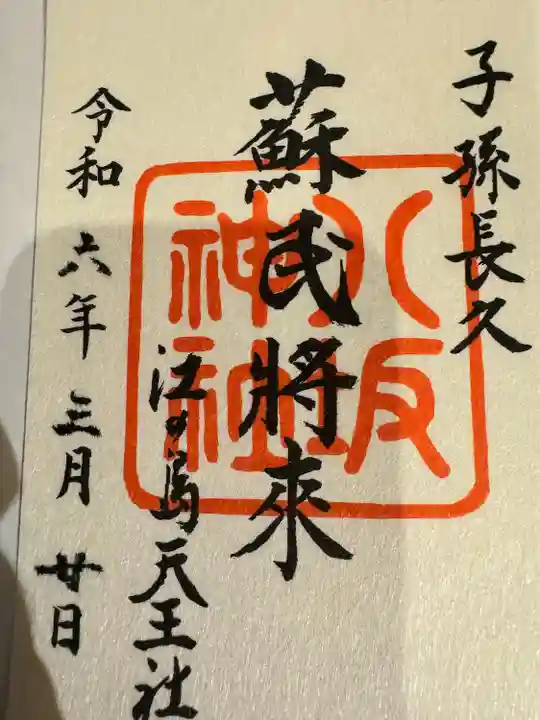 子孫長久
蘇民將來
八坂神社
江の島天王社
令和六年三月廿日